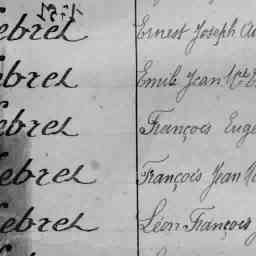 ebret Ernest Joseph
ebret Emile Jean
ebret François Eug
ebret François Jean
ebret Léon François